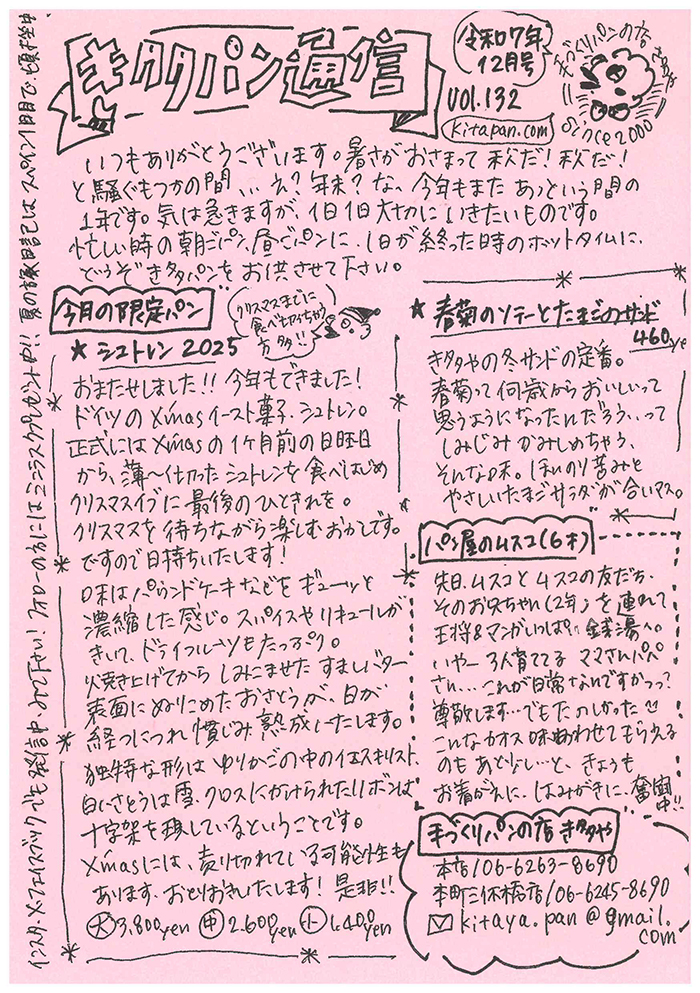 キタタパン通信
令和7年
12月号
VOL.132
kitapan.com
手づくりパンの店 きタタや
since 2000
いつもありがとうございます。暑さがおさまって 秋だ！秋だ！
と騒ぐもつかの間… え？年末？な、今年もまた あっという間の
1年です。気は急きますが、1日1日大切に いきたいものです。
忙しい時の朝ごパン、昼ごパンに、1日が終った時のホットタイムに、
どうぞきタタパンを お供させて下さい。
今月の限定パン
クリスマスまでに
食べ切っちゃう
方多し!!
★ シュトレン 2025
おまたせしました!! 今年もできました！
ドイツの X'mas イースト菓子、シュトレン。
正式には X'mas の1ヶ月前の日曜日
から、薄〜く切ったシュトレンを食べはじめ
クリスマスイブに 最後のひときれを。
クリスマスを 待ちながら楽しむおかしです。
ですので日持ちいたします！
味は パウンドケーキなどを ギューッと
濃縮した感じ。スパイスやリキュールが
きいて、ドライフルーツもたっぷり。
焼き上げてから しみこませた すましバター
表面にぬりこめた おさとうが、日が
経つにつれ 慣じみ 熟成いたします。
独特な形は ゆりかごの中のイエスキリスト、
白いさとうは雪、クロスにかけられたリボンは
十字架を 表しているということです。
X'masには、売り切れている可能性も
あります、おとりおきいたします！是非!!
大 3.800yen 中 2.600yen 小 1.400yen
★ 春菊のソテーとたまごのサンド
460ye
きタタやの冬サンドの定番。
春菊って 何歳から おいしいって
思うようになったんだろう、って
しみじみ かみしめちゃう、
そんな味。ほんのり苦みと
やさしいたまごサラダが合いマス。
パン屋のムスコ(6才)
先日、ムスコと ムスコの友だち、
そのお兄ちゃん(2年)を 連れて
王将&マンガいっぱい 銭湯へ。
いやー 3人育ててる ママさんパパ
さん… これが日常なんですかっっ？
尊敬します…でもたのしかった
こんな カオス 味あわせてもらえる
のも あと少し… と、きょうも
お着がえに、はみがきに、奮闘
中!!
手づくりパンの店 きタタや
本店/06-6263-8690
本町三休橋店/06-6245-8690
kitaya.pan@gmail.
com
インスタ・X・フェイスブックでも発信中 みて下さい！フォローの方には ミニラスクプレゼント中!! 夏の古家日記は スペイン1日目で、頓挫中